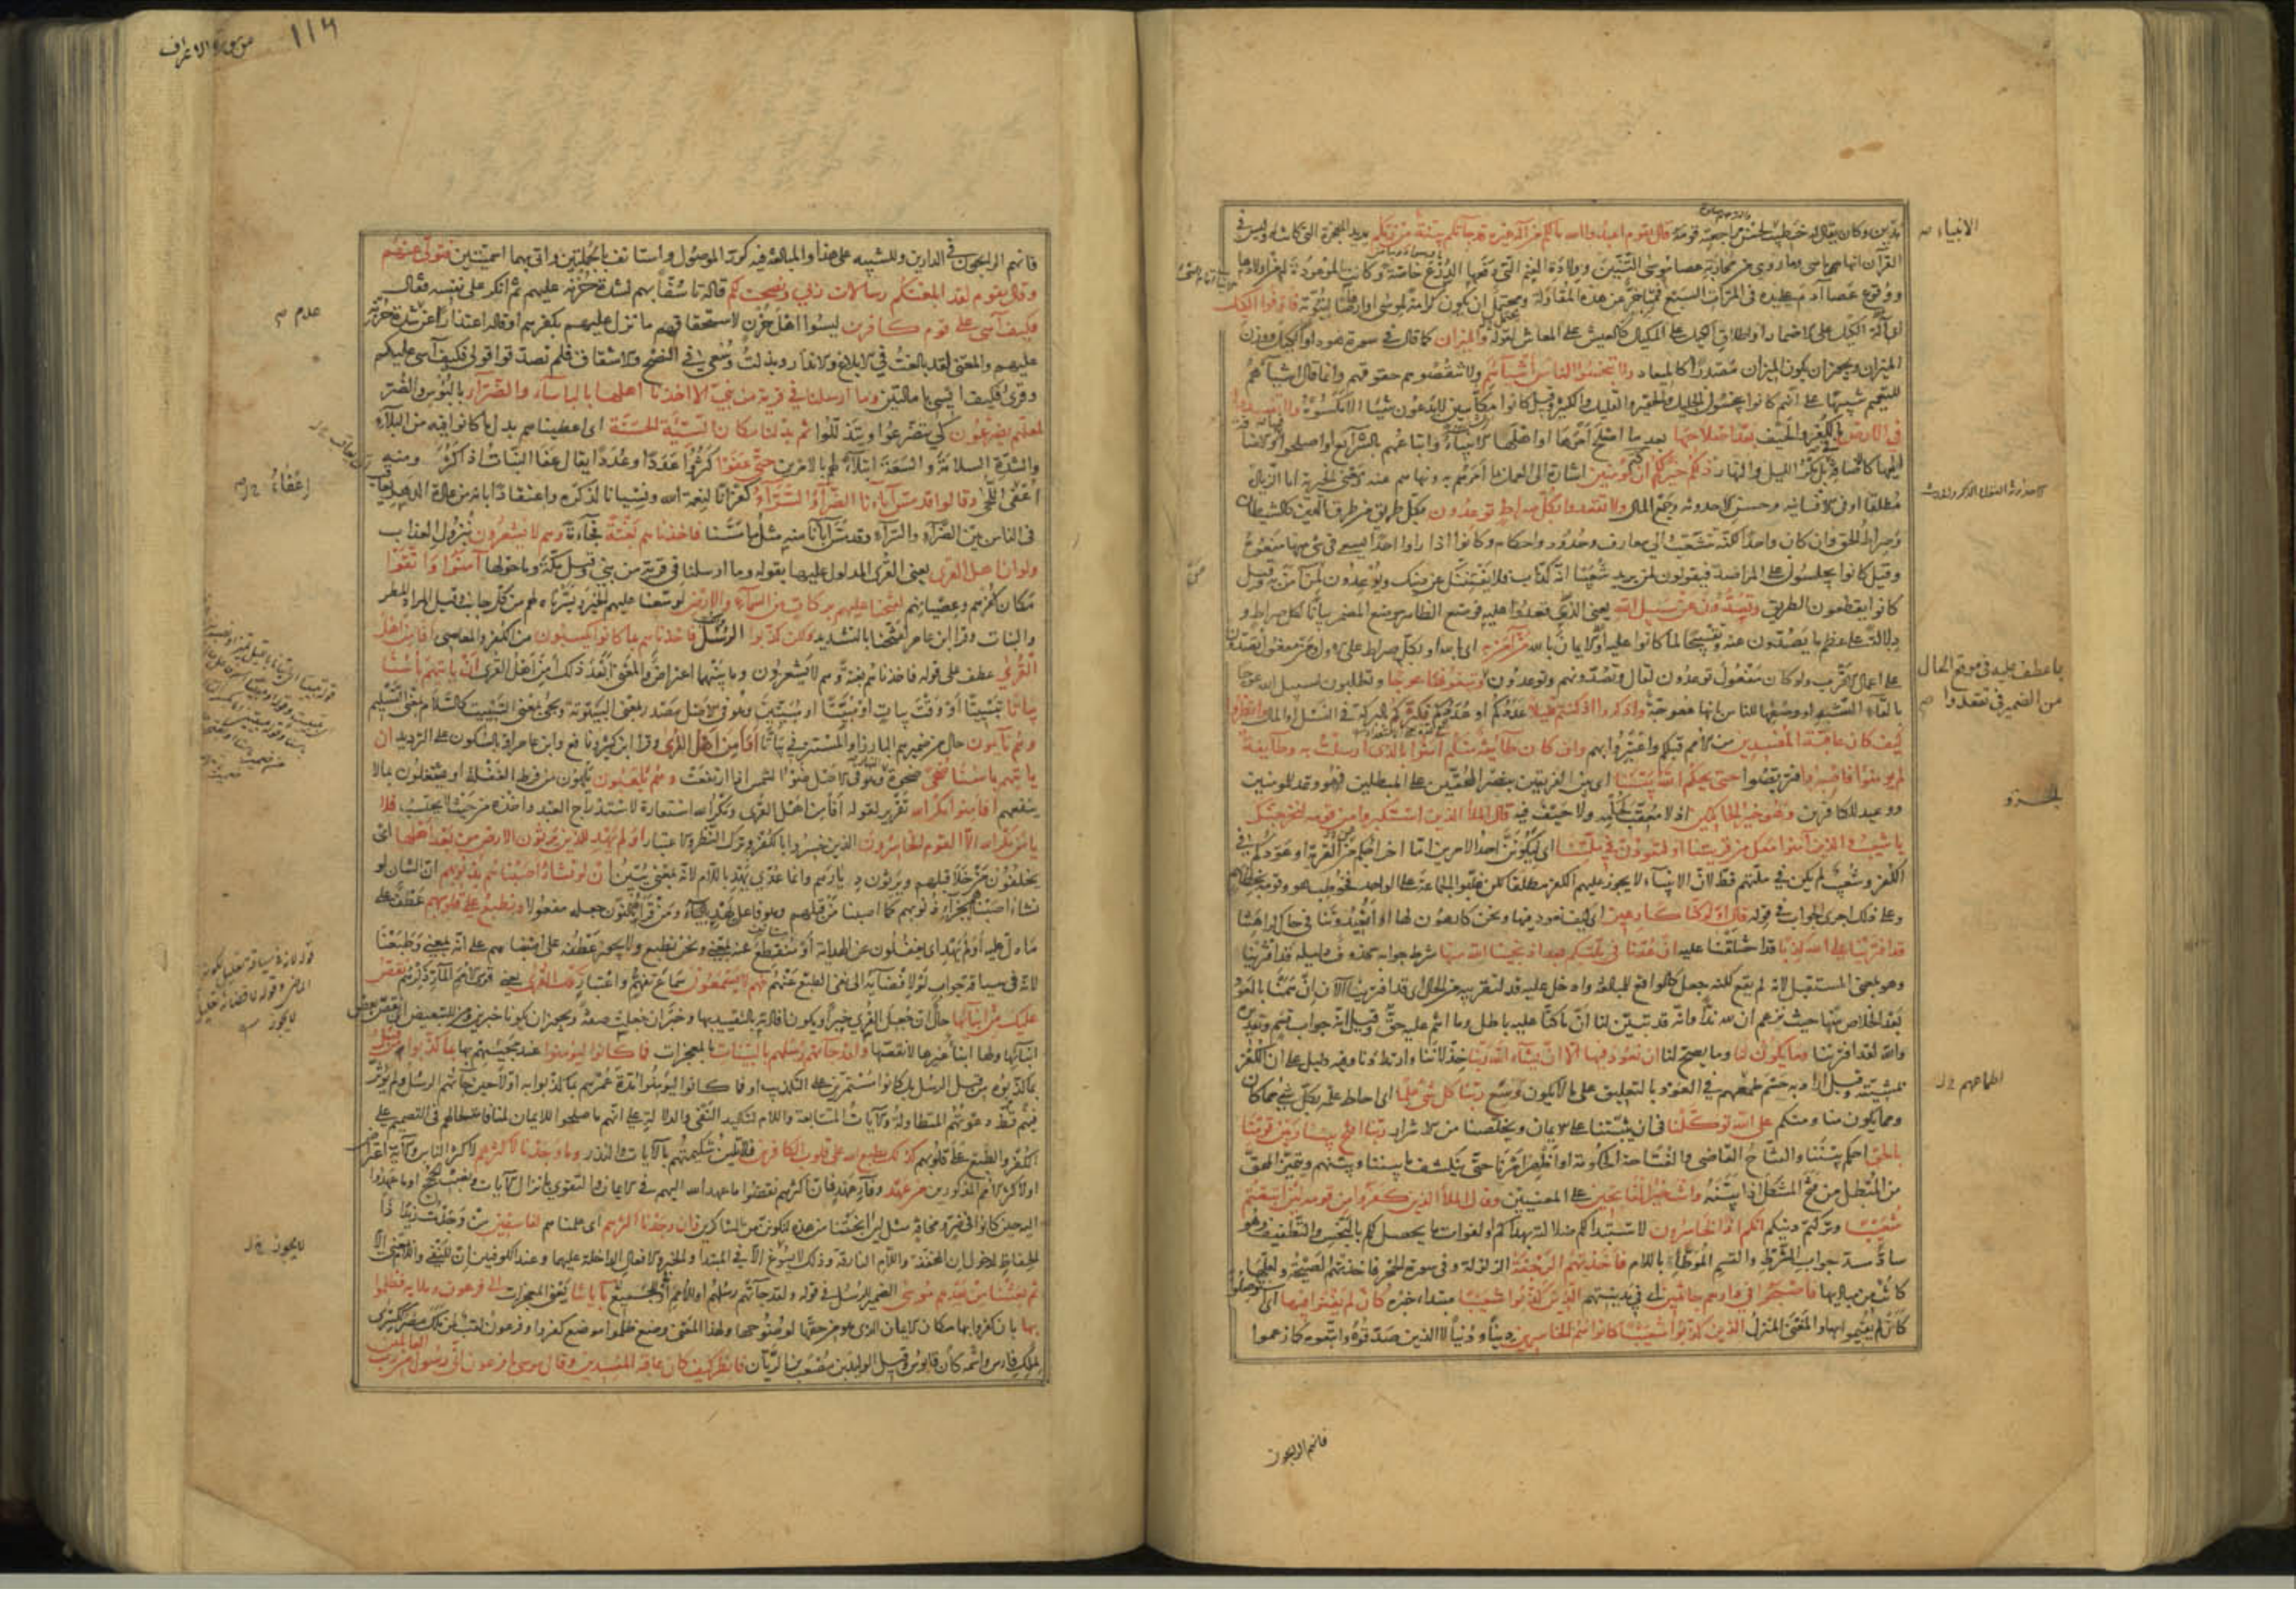 مدين وكان يقال له خطيب الانبياء لحسن مراجعته قومه قال يا قوم اعبدوا الله ما لكم من اله غيره قد جاءتكم بينة من ربكم يريد المعجزة التي كانت له وليس في
القرآن انها ما هي وما روي من محاربة عصا موسى التنين وولادة الغنم التي دفعها اليه الدرع خاصة وكانت الموعودة له من اولادها
ووقوع عصا آدم على يده في المرات السبع فمتأخرة عن هذه المقاولة ويحتمل ان يكون كرامة لموسى او ارهاصا لنبوته فاوفوا الكيل
اي آلة الكيل على الاضمار او اطلاق الكيل على المكيال كالعيش على المعاش لقوله والميزان كما قال في سورة هود او الكيل ووزن
الميزان ويجوز ان يكون الميزان مصدرا كالميعاد ولا تبخسوا الناس اشياءهم ولا تنقصوهم حقوقهم وانما قال اشياءهم
للتعميم تنبيها على انهم كانوا يبخسون الجليل والحقير والقليل والكثير وقيل كانوا مكاسين لا يدعون شيئا الا مكسوه ولا تفسدوا
في الارض بالكفر والحيف بعد اصلاحها بعد ما اصلح امرها او اهلها الانبياء واتباعهم بالشرائع او اصلحوا
فيها والاضافة اليها كالاضافة في بل مكر الليل والنهار ذلكم خير لكم ان كنتم مؤمنين اشارة الى العمل بما امرهم به ونهاهم عنه ومعنى الخيرية اما الزيادة
مطلقا او في الانسانية وحسن الاحدوثة وجمع المال ولا تقعدوا بكل صراط توعدون بكل طريق من طرق الدين كالشيطان
وصراط الحق وان كان واحدا لكنه تشعب الى معارف وحدود واحكام وكانوا اذا راوا احدا يسعى في شيء منها منعوه
وقيل كانوا يجلسون على المراصد فيقولون لمن يريد شعيبا انه كذاب فلا يفتننك عن دينك ويوعدون لمن آمن به وقيل
كانوا يقطعون الطريق وتصدون عن سبيل الله يعني الذي قعدوا عليه فوضع الظاهر موضع المضمر بيانا لكل صراط و
دلالة على عظم ما يصدون عنه وتقبيحا لما كانوا عليه او الايمان بالله من آمن به اي بالله او بكل صراط على الاول ومن مفعول تصدون
على اعمال الاقرب ولو كان مفعول توعدون لقال وتصدونهم وتوعدون وتبغونها عوجا وتطلبون لسبيل الله عوجا
بالقاء الشبه او وصفها للناس بانها معوجة واذكروا اذ كنتم قليلا عددكم او عددكم فكثركم بالبركة في النسل او المال وانظروا
كيف كان عاقبة المفسدين من الامم قبلكم واعتبروا بهم وان كان طائفة منكم آمنوا بالذي ارسلت به وطائفة
لم يؤمنوا فاصبروا فتربصوا حتى يحكم الله بيننا اي بين الفريقين بنصر المحقين على المبطلين فهو وعد للمؤمنين
ووعيد للكافرين وهو خير الحاكمين اذ لا معقب لحكمه ولا حيف فيه قال الملأ الذين استكبروا من قومه لنخرجنك
يا شعيب والذين آمنوا معك من قريتنا او لتعودن في ملتنا اي ليكونن احد الامرين اما اخراجكم من القرية او عودكم في
الكفر وشعيب لم يكن في ملتهم قط لان الانبياء لا يجوز عليهم الكفر مطلقا لكن غلبوا الجماعة على الواحد فخوطب هو وقومه بخطابهم
وعلى ذلك اجرى الجواب في قوله قال اولو كنا كارهين اي كيف نعود فيها ونحن كارهون لها او أتعيدوننا في حال كراهتنا
قد افترينا على الله كذبا قد اختلقنا عليه ان عدنا في ملتكم بعد اذ نجينا الله منها شرط جوابه محذوف دليله قد افترينا
وهو بمعنى المستقبل لانه لم يقع لكنه جعل كالواقع للمبالغة وادخل عليه قد لتقريبه من الحال اي قد افترينا الآن ان هممنا بالعود
بعد الخلاص منها حيث نزعم ان لله ندا وانه قد تبين لنا ان ما كنا عليه باطل وما انتم عليه حق وقيل انه جواب قسم وتقديره
والله لقد افترينا وما يكون لنا وما يصح لنا ان نعود فيها الا ان يشاء الله ربنا خذلاننا وارتدادنا وفيه دليل على ان الكفر
بمشيئته وقيل اراد به حسم طمعهم في العود بالتعليق على ما لا يكون وسع ربنا كل شيء علما اي احاط علمه بكل شيء مما كان
ومما يكون منا ومنكم على الله توكلنا في ان يثبتنا على الايمان ويخلصنا من الاشرار ربنا افتح بيننا وبين قومنا
بالحق احكم بيننا والفتاح القاضي والفتاحة الحكومة او اظهر امرنا حتى ينكشف ما بيننا وبينهم ويتميز المحق
من المبطل من فتح المشكل اذا بينه وانت خير الفاتحين على المعنيين وقال الملأ الذين كفروا من قومه لئن اتبعتم
شعيبا وتركتم دينكم انكم اذا لخاسرون لاستبدالكم ضلالته بهداكم او لفوات ما يحصل لكم بالبخس والتطفيف وهو
ساد مسد جواب الشرط والقسم الموطأ باللام فاخذتهم الرجفة الزلزلة وفي سورة الحجر فاخذتهم الصيحة ولعلها
كانت من مباديها فاصبحوا في دارهم جاثمين اي في مدينتهم الذين كذبوا شعيبا مبتدأ خبره كان لم يغنوا فيها اي استوصلوا
كان لم يقيموا بها والمغنى المنزل الذين كذبوا شعيبا كانوا هم الخاسرين دينا ودنيا لا الذين صدقوه واتبعوه كما زعموا
الانبياء صح
ما عطف عليه في موقع الحال
من الضمير في تقعدوا
اطماعهم
فانهم الرابحون
من سورة الاعراف
١١٦
فانهم الرابحون في الدارين وللتنبيه على هذا والمبالغة فيه كرر الموصول واستانف بالجملتين واتى بهما اسميتين فتولى عنهم
وقال يا قوم لقد ابلغتكم رسالات ربي ونصحت لكم قاله تاسفا بهم لشدة حزنه عليهم ثم انكر على نفسه فقال
فكيف آسى على قوم كافرين ليسوا اهل حزن لاستحقاقهم ما نزل عليهم بكفرهم او قاله اعتذارا عن عدم شدة حزنه
عليهم والمعنى لقد بالغت في الابلاغ والانذار وبذلت وسعي في النصح والاشفاق فلم تصدقوا قولي فكيف آسى عليكم
وقرئ فكيف ايسى بامالتين وما ارسلنا في قرية من نبي الا اخذنا اهلها بالبأساء والضراء بالبؤس والضر
لعلهم يضرعون كي يتضرعوا ويتذللوا ثم بدلنا مكان السيئة الحسنة اي اعطيناهم بدل ما كانوا فيه من البلاء
والشدة السلامة والسعة ابتلاء لهم بالامرين حتى عفوا كثروا عددا وعددا يقال عفا النبات اذا كثر ومنه
اعفى اللحى وقالوا قد مس آباءنا الضراء والسراء كفرانا لنعمة الله ونسيانا لذكره واعتقادا بانه من عادة الدهر يعاقب
في الناس بين الضراء والسراء وقد مس آباءنا منه مثل ما مسنا فاخذناهم بغتة فجاءة وهم لا يشعرون بنزول العذاب
ولو ان اهل القرى يعني القرى المدلول عليها بقوله وما ارسلنا في قرية من نبي وقيل مكة وما حولها آمنوا واتقوا
مكان كفرهم وعصيانهم لفتحنا عليهم بركات من السماء والارض لوسعنا عليهم الخير ويسرناه لهم من كل جانب وقيل المراد المطر
والنبات وقرأ ابن عامر لفتحنا بالتشديد ولكن كذبوا الرسل فاخذناهم بما كانوا يكسبون من الكفر والمعاصي افامن اهل
القرى عطف على قوله فاخذناهم بغتة وهم لا يشعرون وما بينهما اعتراض والمعنى ابعد ذلك امن اهل القرى ان ياتيهم بأسنا
بياتا تبييتا او وقت بيات او مبيتا او مبيتين وهو في الاصل مصدر بمعنى البيتوتة ويجيء بمعنى التبييت كالسلام بمعنى التسليم
وهم نائمون حال من ضميرهم البارز او المستتر في بياتا أوأمن اهل القرى وقرأ ابن كثير ونافع وابن عامر او بالسكون على الترديد ان
ياتيهم باسنا ضحى ضحوة النهار وهو في الاصل ضوء الشمس اذا ارتفعت وهم يلعبون يلهون من فرط الغفلة او يشتغلون بما لا
ينفعهم أفامنوا مكر الله تقرير لقوله أفامن اهل القرى ومكر الله استعارة لاستدراج العبد واخذه من حيث لا يحتسب فلا
يامن مكر الله الا القوم الخاسرون الذين خسروا بالكفر وترك النظر والاعتبار أولم يهد للذين يرثون الارض من بعد اهلها اي
يخلفون من خلا قبلهم ويرثون ديارهم وانما عدي يهد باللام لانه بمعنى يبين ان لو نشاء اصبناهم بذنوبهم ان الشأن لو
نشاء اصبناهم بجزاء ذنوبهم كما اصبنا من قبلهم وهو فاعل يهد ومن قرأه بالنون جعله مفعولا ونطبع على قلوبهم عطف على
ما دل عليه أولم يهد اي يغفلون عن الهداية او منقطع عنه بمعنى ونحن نطبع ولا يجوز عطفه على اصبناهم على انه بمعنى وطبعنا
لانه في سياقه جواب لو لافضائه الى نفي الطبع عنهم فهم لا يسمعون سماع تفهم واعتبار تلك القرى يعني قرى الامم المار ذكرهم نقص
عليك من انبائها حال ان جعل القرى خبرا ويكون افادته بالتقييد بها وخبر ان جعلت صفة ويجوز ان يكونا خبرين ومن للتبعيض اي نقص بعض
انبائها ولها انباء غيرها لا نقصها ولقد جاءتهم رسلهم بالبينات بالمعجزات فما كانوا ليؤمنوا عند مجيئهم بها بما كذبوا من قبل
بما كذبوه من قبل الرسل بل كانوا مستمرين على التكذيب او فما كانوا ليؤمنوا مدة عمرهم بما كذبوا به اولا حين جاءتهم الرسل ولم يؤثر
فيهم قط دعوتهم المتطاولة والآيات المتتابعة واللام لتاكيد النفي والدلالة على انهم ما صلحوا للايمان لمنافاته لحالهم في التصميم على
الكفر والطبع على قلوبهم كذلك يطبع الله على قلوب الكافرين فلا تلين شكيمتهم بالآيات والنذر وما وجدنا لاكثرهم لاكثر الناس والآية اعتراض
او لاكثر الامم المذكورين من عهد وفاء عهد فان اكثرهم نقضوا ما عهد الله اليهم في الايمان والتقوى بانزال الآيات ونصب الحجج او ما عهدوا
اليه حين كانوا في ضر ومخافة مثل لئن انجيتنا من هذه لنكونن من الشاكرين وان وجدنا اكثرهم اي علمناهم لفاسقين من وجدت زيدا ذا
الحفاظ لدخول ان المخففة واللام الفارقة وذلك لا يسوغ الا في المبتدأ والخبر والافعال الداخلة عليهما وعند الكوفيين ان للنفي واللام بمعنى الا
ثم بعثنا من بعدهم موسى الضمير للرسل في قوله ولقد جاءتهم رسلهم او للامم بآياتنا يعني المعجزات الى فرعون وملائه فظلموا
بها بان كفروا بها مكان الايمان الذي هو من حقها لوضوحها ولهذا المعنى وضع ظلموا موضع كفروا وفرعون لقب لمن ملك مصر ككسرى
لملك فارس واسمه كان قابوس وقيل الوليد بن مصعب بن الريان فانظر كيف كان عاقبة المفسدين وقال موسى يا فرعون اني رسول من رب العالمين
عدم صح
لا يجوز